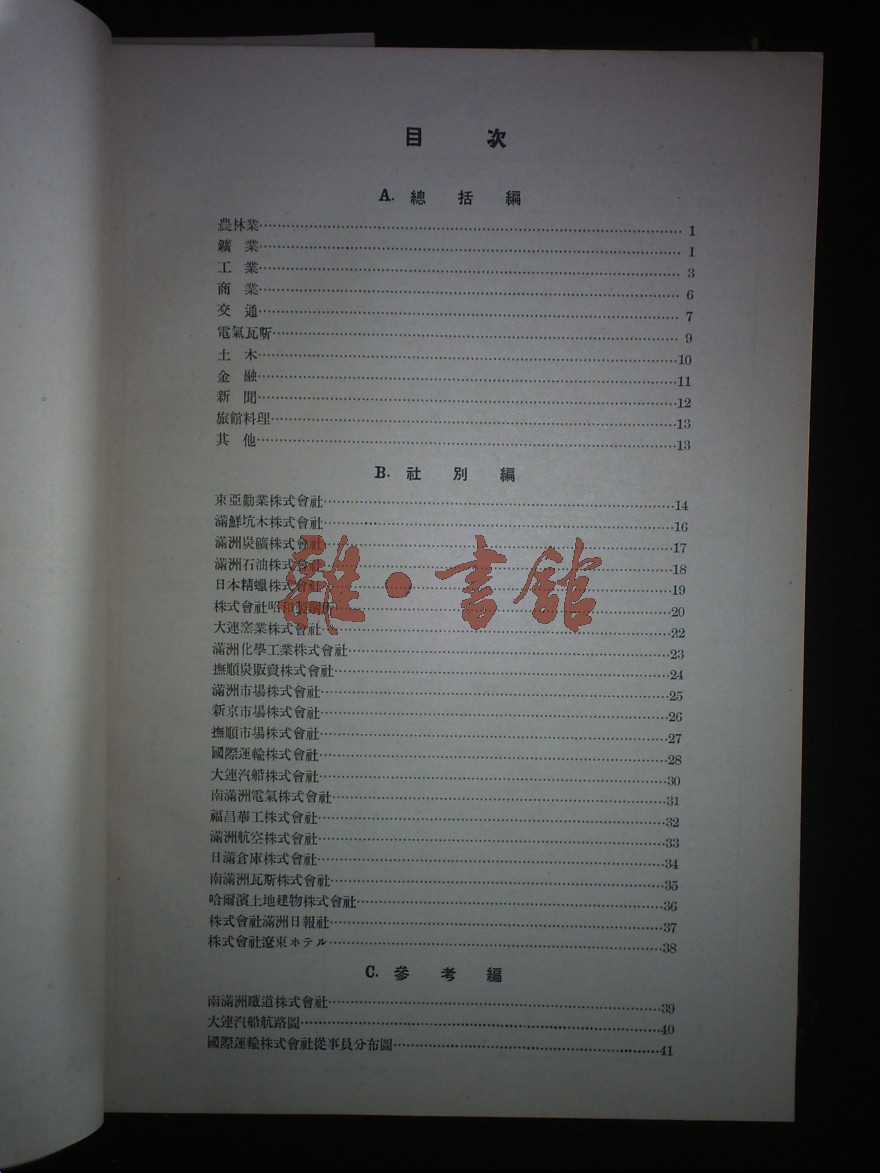 目 次
A. 總 括 編
農林業……1
鑛 業……1
工 業……3
商 業……6
交 通……7
電氣瓦斯……9
土 木……10
金 融……11
新 聞……12
旅館料理……13
其 他……13
B. 社 別 編
東亞勸業株式會社……14
滿鮮坑木株式會社……16
滿洲炭鑛株式會社……17
滿洲石油株式會社……18
日本精蠟株式會社……19
株式會社昭和製鋼所……20
大連窯業株式會社……22
滿洲化學工業株式會社……23
撫順炭販賣株式會社……24
滿洲市場株式會社……25
新京市場株式會社……26
撫順市場株式會社……27
國際運輸株式會社……28
大連汽船株式會社……30
南滿洲電氣株式會社……31
福昌華工株式會社……32
滿洲航空株式會社……33
日滿倉庫株式會社……34
南滿洲瓦斯株式會社……35
哈爾濱土地建物株式會社……36
株式會社滿洲日報社……37
株式會社遼東ホテル……38
C. 參 考 編
南滿洲鐵道株式會社……39
大連汽船航路圖……40
國際運輸株式會社從事員分布圖……41
雜·書館